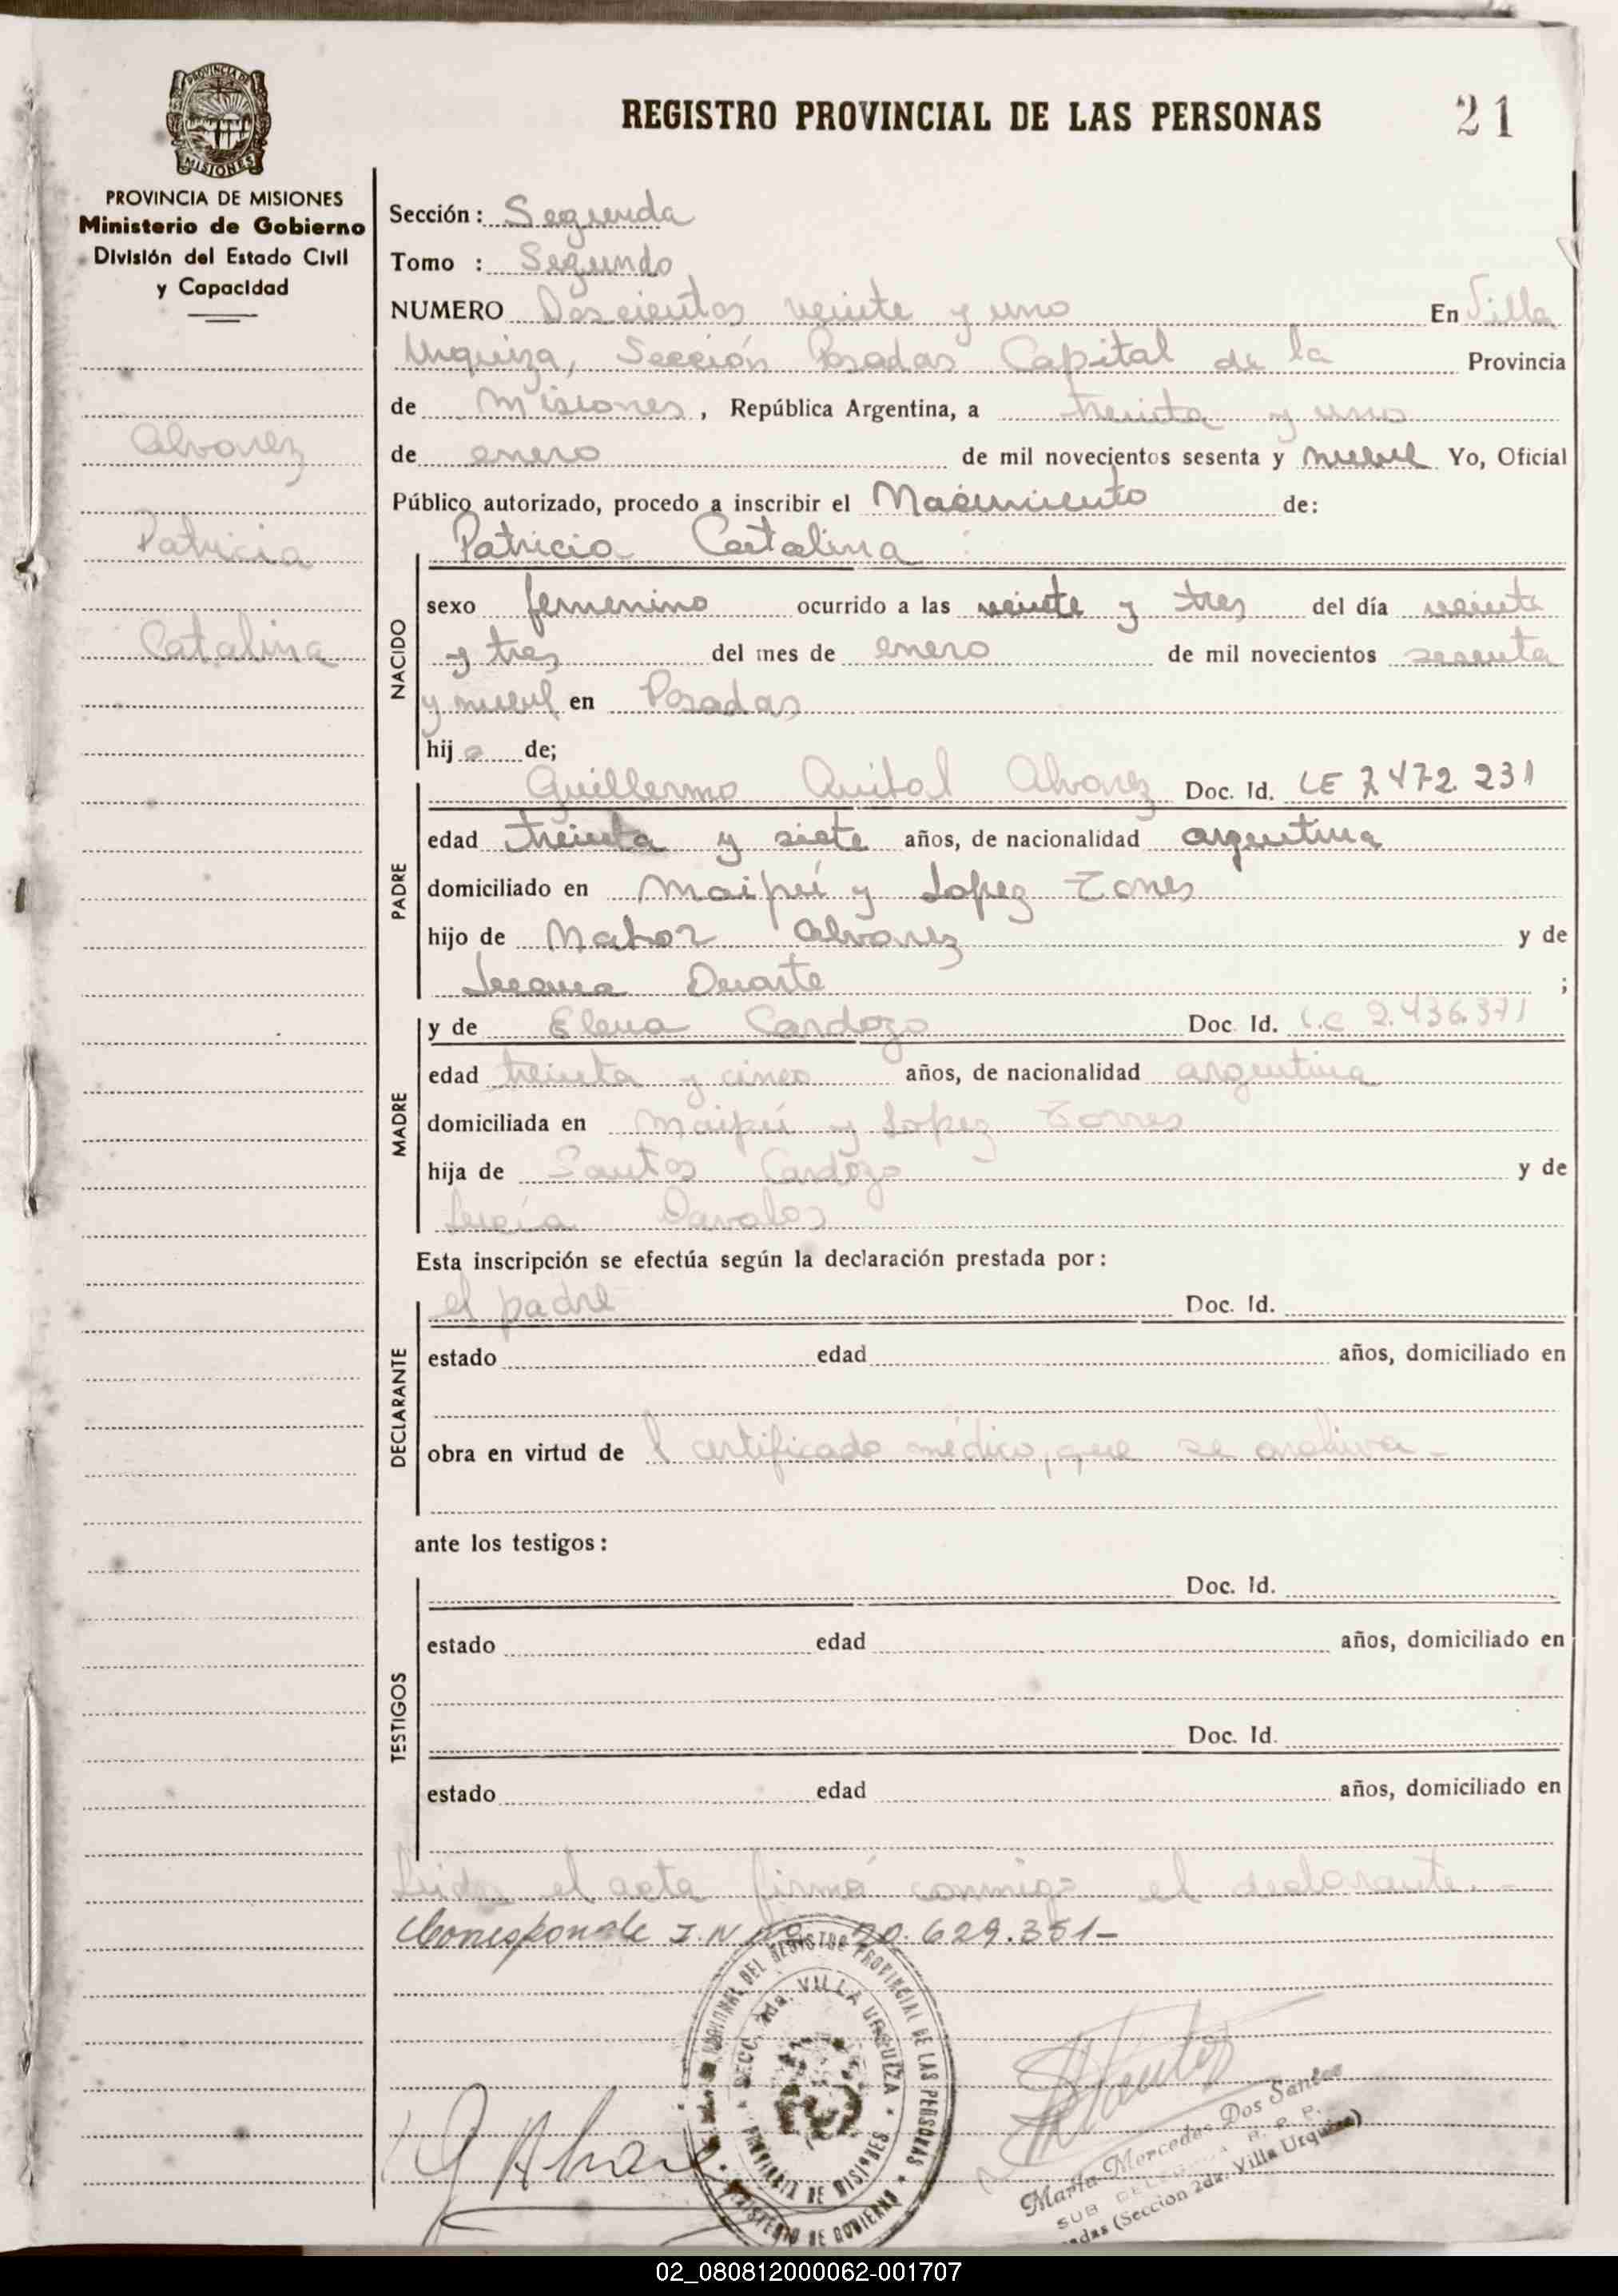 PROVINCIA DE MISIONES
REGISTRO PROVINCIAL DE LAS PERSONAS 21
PROVINCIA DE MISIONES
Ministerio de Gobierno
División del Estado Civil
y Capacidad
Alvarez
Patricia
Catalina
Sección: Segunda
Tomo : Segundo
NUMERO Doscientos veinte y uno En Villa
Urquiza, Sección Posadas Capital de la Provincia
de Misiones, República Argentina, a treinta y uno
de enero de mil novecientos sesenta y nueve Yo, Oficial
Público autorizado, procedo a inscribir el Nacimiento de:
Patricia Catalina
NACIDO
sexo femenino ocurrido a las veinte y tres del día veinte
y tres del mes de enero de mil novecientos sesenta
y nueve en Posadas
hija de;
PADRE
Guillermo Alvarez Doc. Id. LE 7.472.231
edad treinta y siete años, de nacionalidad argentina
domiciliado en Maipú y Lopez Torres
hijo de Alvarez y de
Duarte ;
MADRE
y de Elena Cardozo Doc. Id. L.C 2.436.371
edad treinta y cinco años, de nacionalidad argentina
domiciliada en Maipú y Lopez Torres
hija de Santos Cardozo y de
Lucía Davalos
Esta inscripción se efectúa según la declaración prestada por:
DECLARANTE
el padre Doc. Id.
estado edad años, domiciliado en
obra en virtud de l certificado médico, que se archiva -
ante los testigos:
TESTIGOS
Doc. Id.
estado edad años, domiciliado en
Doc. Id.
estado edad años, domiciliado en
Leida el acta firmó conmigo el declarante. -
Corresponde I.N Nº 20.629.351-
DEL REGISTRO PROVINCIAL DE LAS PERSONAS
SECC. 2da. VILLA URQUIZA
PROVINCIA DE MISIONES
MINISTERIO DE GOBIERNO
G Alvarez
María Mercedes Dos Santos
SUB DELEGADA R. P. P.
Posadas (Sección 2da. Villa Urquiza)
02_080812000062-001707